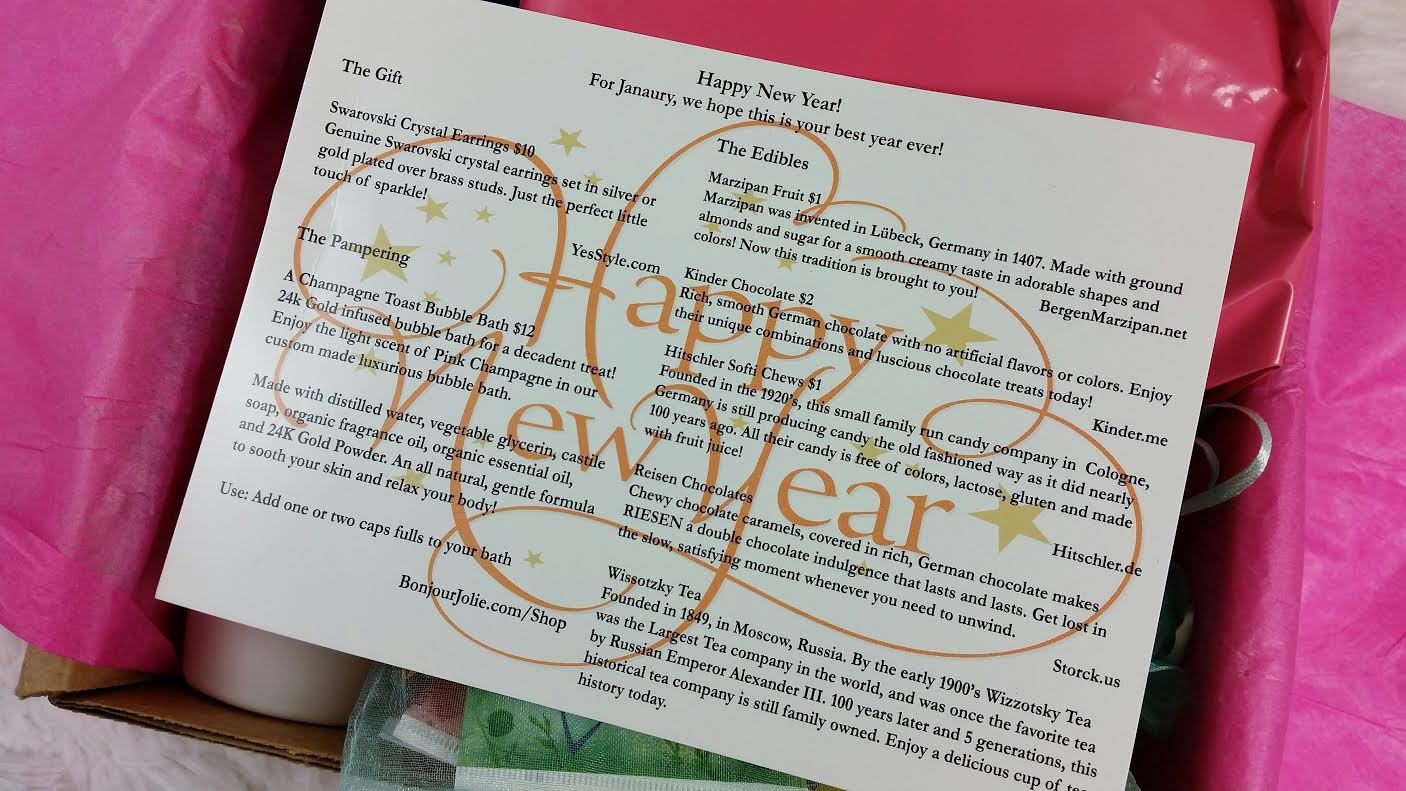 Happy New Year!
For Janaury, we hope this is your best year ever!
The Gift
Swarovski Crystal Earrings $10
Genuine Swarovski crystal earrings set in silver or
gold plated over brass studs. Just the perfect little
touch of sparkle!
YesStyle.com
The Pampering
A Champagne Toast Bubble Bath $12
24k Gold infused bubble bath for a decadent treat!
Enjoy the light scent of Pink Champagne in our
custom made luxurious bubble bath.
Made with distilled water, vegetable glycerin, castile
soap, organic fragrance oil, organic essential oil,
and 24K Gold Powder. An all natural, gentle formula
to sooth your skin and relax your body!
Use: Add one or two caps fulls to your bath
BonjourJolie.com/Shop
The Edibles
Marzipan Fruit $1
Marzipan was invented in Lübeck, Germany in 1407. Made with ground
almonds and sugar for a smooth creamy taste in adorable shapes and
colors! Now this tradition is brought to you!
BergenMarzipan.net
Kinder Chocolate $2
Rich, smooth German chocolate with no artificial flavors or colors. Enjoy
their unique combinations and luscious chocolate treats today!
Kinder.me
Hitschler Softi Chews $1
Founded in the 1920's, this small family run candy company in Cologne,
Germany is still producing candy the old fashioned way as it did nearly
100 years ago. All their candy is free of colors, lactose, gluten and made
with fruit juice!
Hitschler.de
Reisen Chocolates
Chewy chocolate caramels, covered in rich, German chocolate makes
RIESEN a double chocolate indulgence that lasts and lasts. Get lost in
the slow, satisfying moment whenever you need to unwind.
Storck.us
Wissotzky Tea
Founded in 1849, in Moscow, Russia. By the early 1900's Wizzotsky Tea
was the Largest Tea company in the world, and was once the favorite tea
by Russian Emperor Alexander III. 100 years later and 5 generations, this
historical tea company is still family owned. Enjoy a delicious cup of
history today.
Happy
New Year